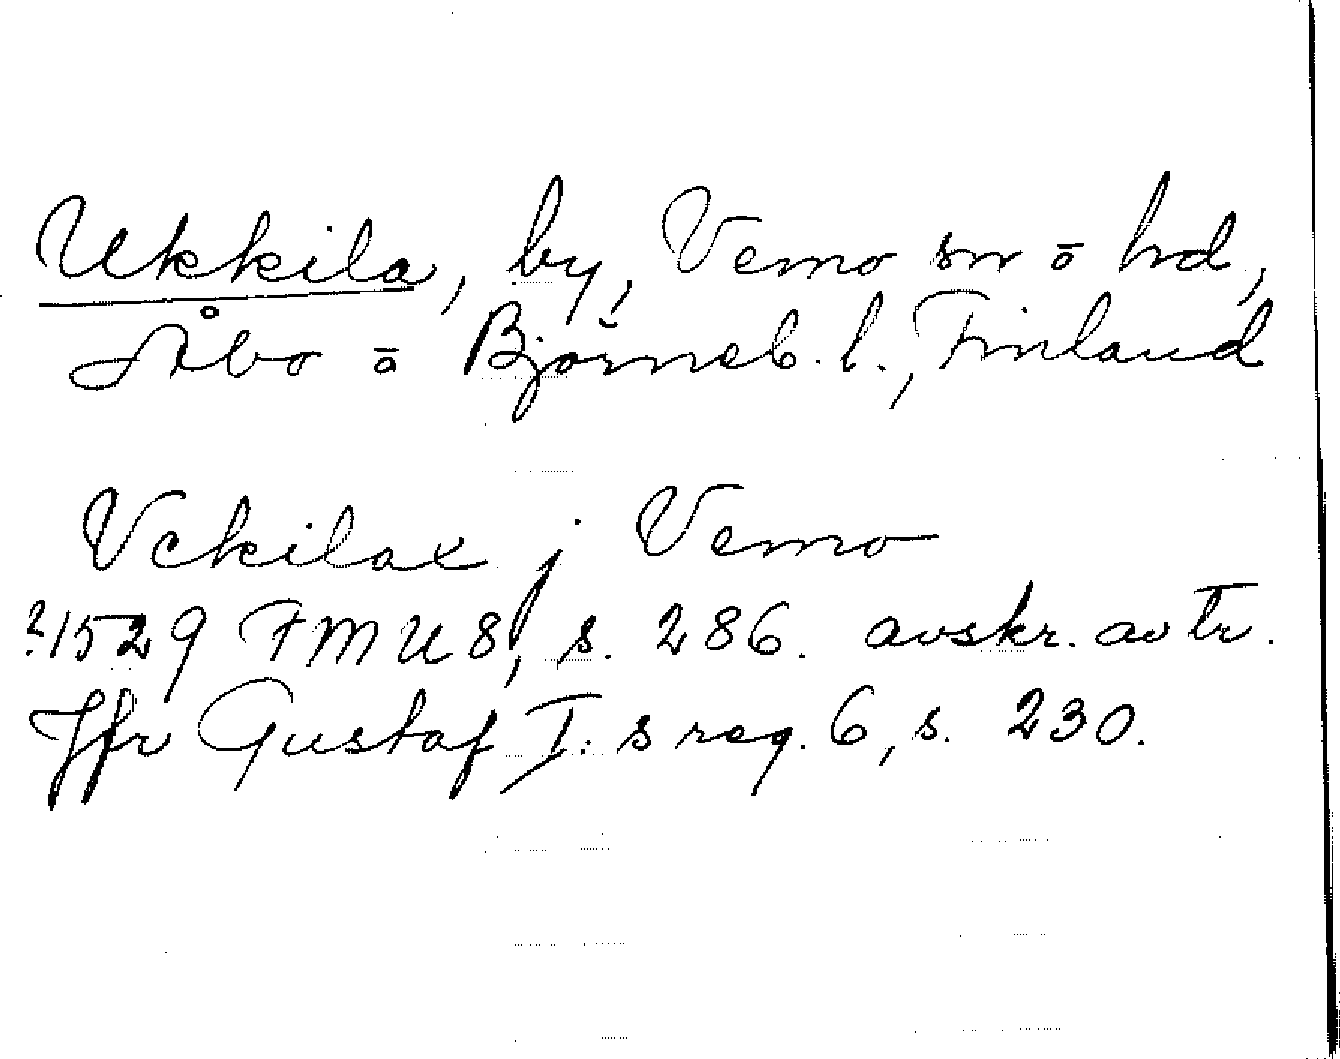 Ukkila, by, Vemo sn o hd,
Åbo o Björneb. l., Finland
Vckilax j Vemo
?1529 FMU 8, s. 286. avskr. av tr.
Jfr Gustaf I:s reg. 6, s. 230.